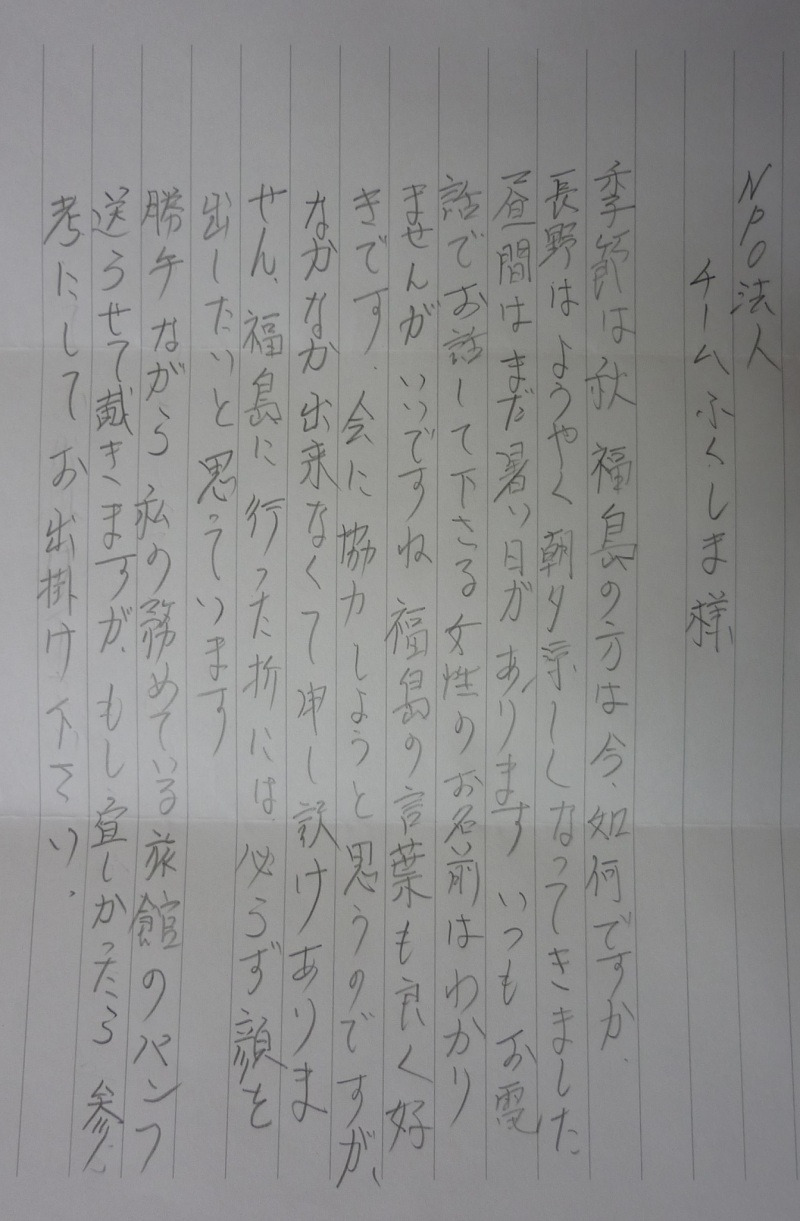 NPO法人
チームふくしま様
季節は秋 福島の方は今、如何ですか、
長野は ようやく朝夕涼しくなってきました
昼間はまだ暑い日があります いつもお電
話でお話して下さる女性のお名前はわかり
ませんが いいですね 福島の言葉も良く好
きです、会に協力しようと思うのですが、
なかなか出来なくて申し訳けありま
せん、福島に行った折には必らず顔を
出したいと思っています
勝手ながら 私の務めている旅館のパンフ
送らせて戴きますが、もし宜しかったら参
考にしてお出掛け下さい。